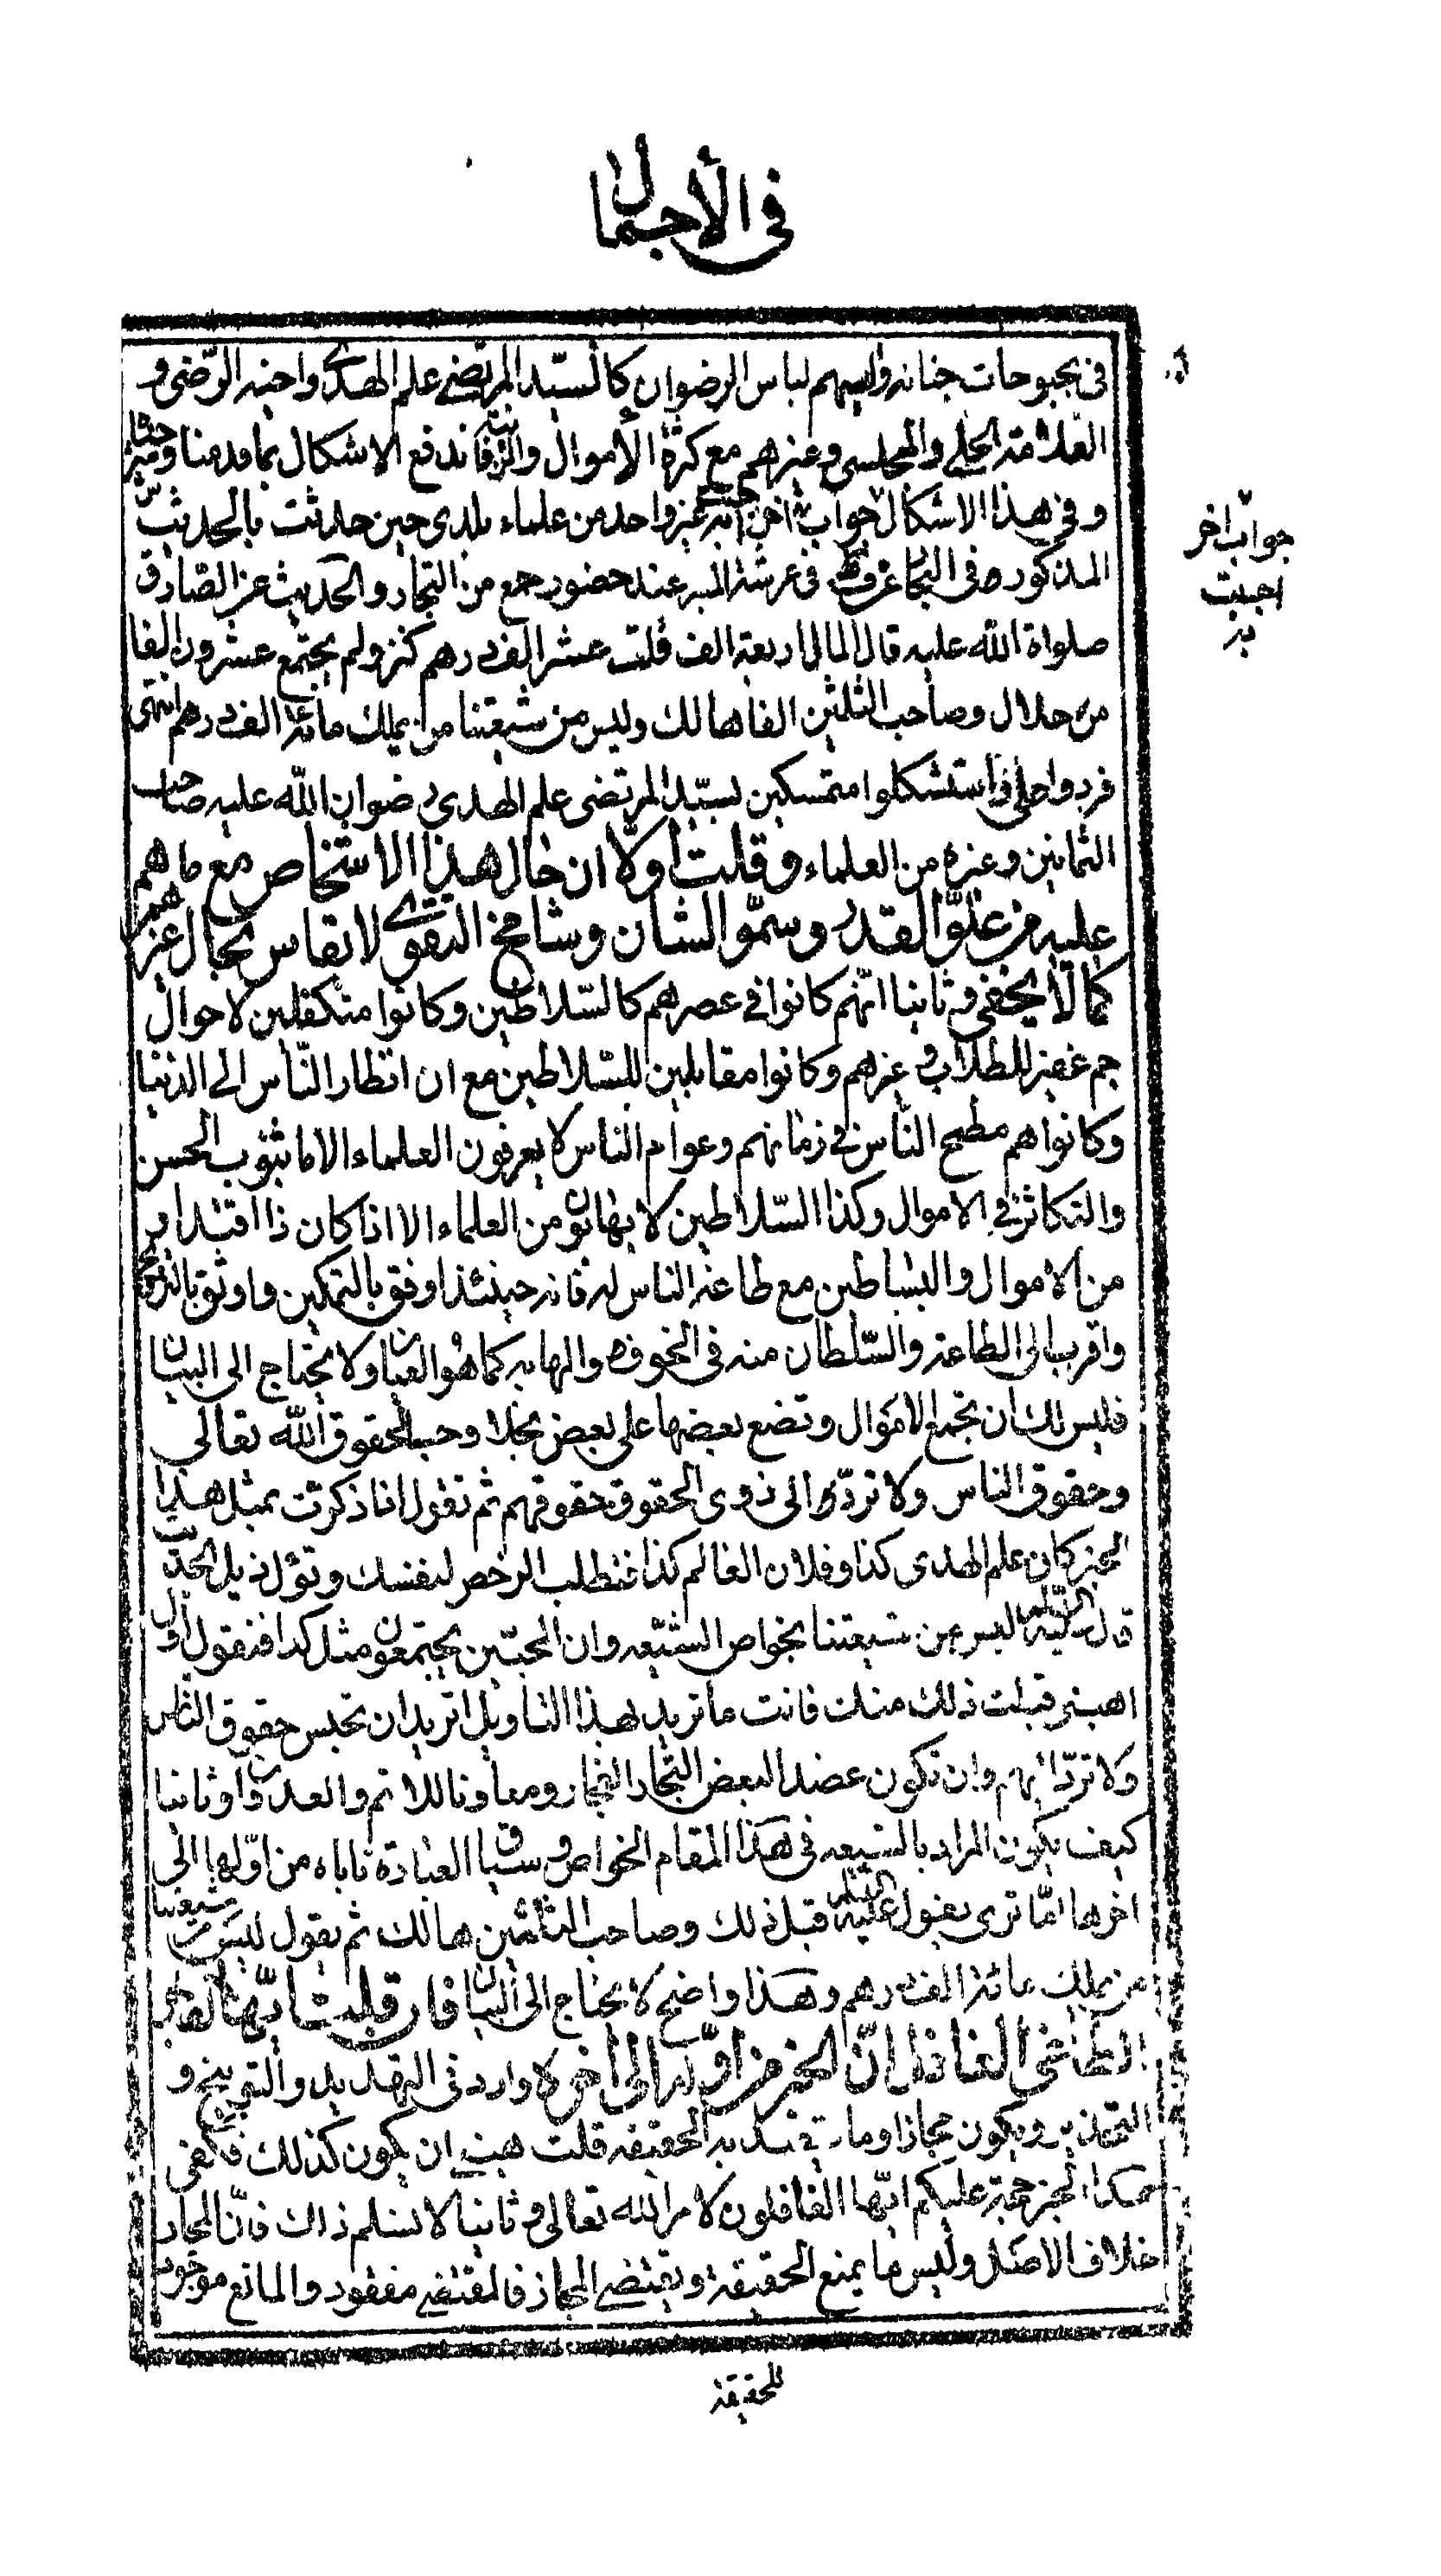 في الأجمال
في بحبوحات جنانه والبسهم لباس الرضوان كالسيّد المرتضى علم الهدى واخيه الرّضي و
العلّامة الحلي والمجلسي وغيرهم مع كثرة الأموال والزينة فاندفع الاشكال بما قدمنا
وفي هذا الاشكال جواب اخر اجبت به غير واحد من علماء بلدي حين حدثت بالحديث
المذكور في عرشة المنبر عند حضور جمع من التجار والحديث عن الصّادق
صلواة الله عليه قال المال اربعة الف قلت عشر الف درهم كنز ولم يجتمع عشرون الفا
من حلال وصاحب الثلثين الفا هالك وليس من شيعتنا من يملك مائة الف درهم انتهى
فردوا علي فاستشكلوا متمسكين بسيّد المرتضى علم الهدى رضوان الله عليه صاحب
الثمانين وغيره من العلماء وقلت أولا ان حال هذا الاشخاص مع ما هم
عليه من علوّ القدر وسموّ الشان وشامخ التقوى لا تقاس بحال غيرهم
كما لا يخفى وثانيا انّهم كانوا في عصرهم كالسّلاطين وكانوا متكفلين لاحوال
جم غفير للطلاب وغيرهم وكانوا مقابلين للسّلاطين مع ان انظار النّاس الى الدّنيا
وكانوا هم مطمح النّاس في زمانهم وعوام الناس لا يعرفون العلماء الا بالحسن
والتكاثر في الاموال وكذا السّلاطين لا يهابون من العلماء الا اذا كان ذا اقتدار
من الاموال والبساطين مع طاعة الناس له فانه حينئذ اوفق بالتمكين واوثق بالترويج
واقرب الى الطاعة والسّلطان منه في الخوف والمهابه كما هو العيان ولا يحتاج الى البيان
فليس لك ان تجمع الاموال وتضع بعضها على بعض بخلا وحبسا لحقوق الله تعالى
وحقوق الناس ولا تردّها الى ذوي الحقوق حقوقهم ثم تقول اذا ذكرت بمثل هذا
الخبر كان علم الهدى كذا وفلان العالم كذا فتطلب الرخص لنفسك وتؤل ذيل الحديث
قال عليه السلام ليس من شيعتنا بخواص الشيّعه وان المحبّين يجتمعون مثل كذا فنقول أولا
اهبني قبلت ذلك منك فانت ما تريد بهذا التاويل اتريد ان تحبس حقوق الناس
ولا تردّ اليهم وان تكون عضدا لبعض التجار الفجار ومعاونا للاثم والعدوان وثانيا
كيف يكون المراد بالشيعه في هذا المقام الخواص وسياق العبارة تاباه من اوّلها الى
اخرها امّا ترى يقول عليه السلام قبل ذلك وصاحب الثلثين هالك ثم يقول ليس من شيعتنا
من يملك مائة الف درهم وهذا واضح لا يحتاج الى البيان فان قلت ايّها
الطاغي الغافل انّ الخبر من اوّله الى اخره وارد في التهديد والتوبيخ و
التحذير ويكون مجازا وما به الحقيقه قلت هبني ان يكون كذلك فكفى
هكذا الخبر حجة عليكم ايّها الغافلون لامر الله تعالى وثانيا لا نسلم ذلك فانّ المجاز
خلاف الاصل وليس ما يمنع الحقيقة ويقتضي المجاز فالمقتضي مفقود والمانع موجود
للحقيقة
جواب اخر
اجبت
به